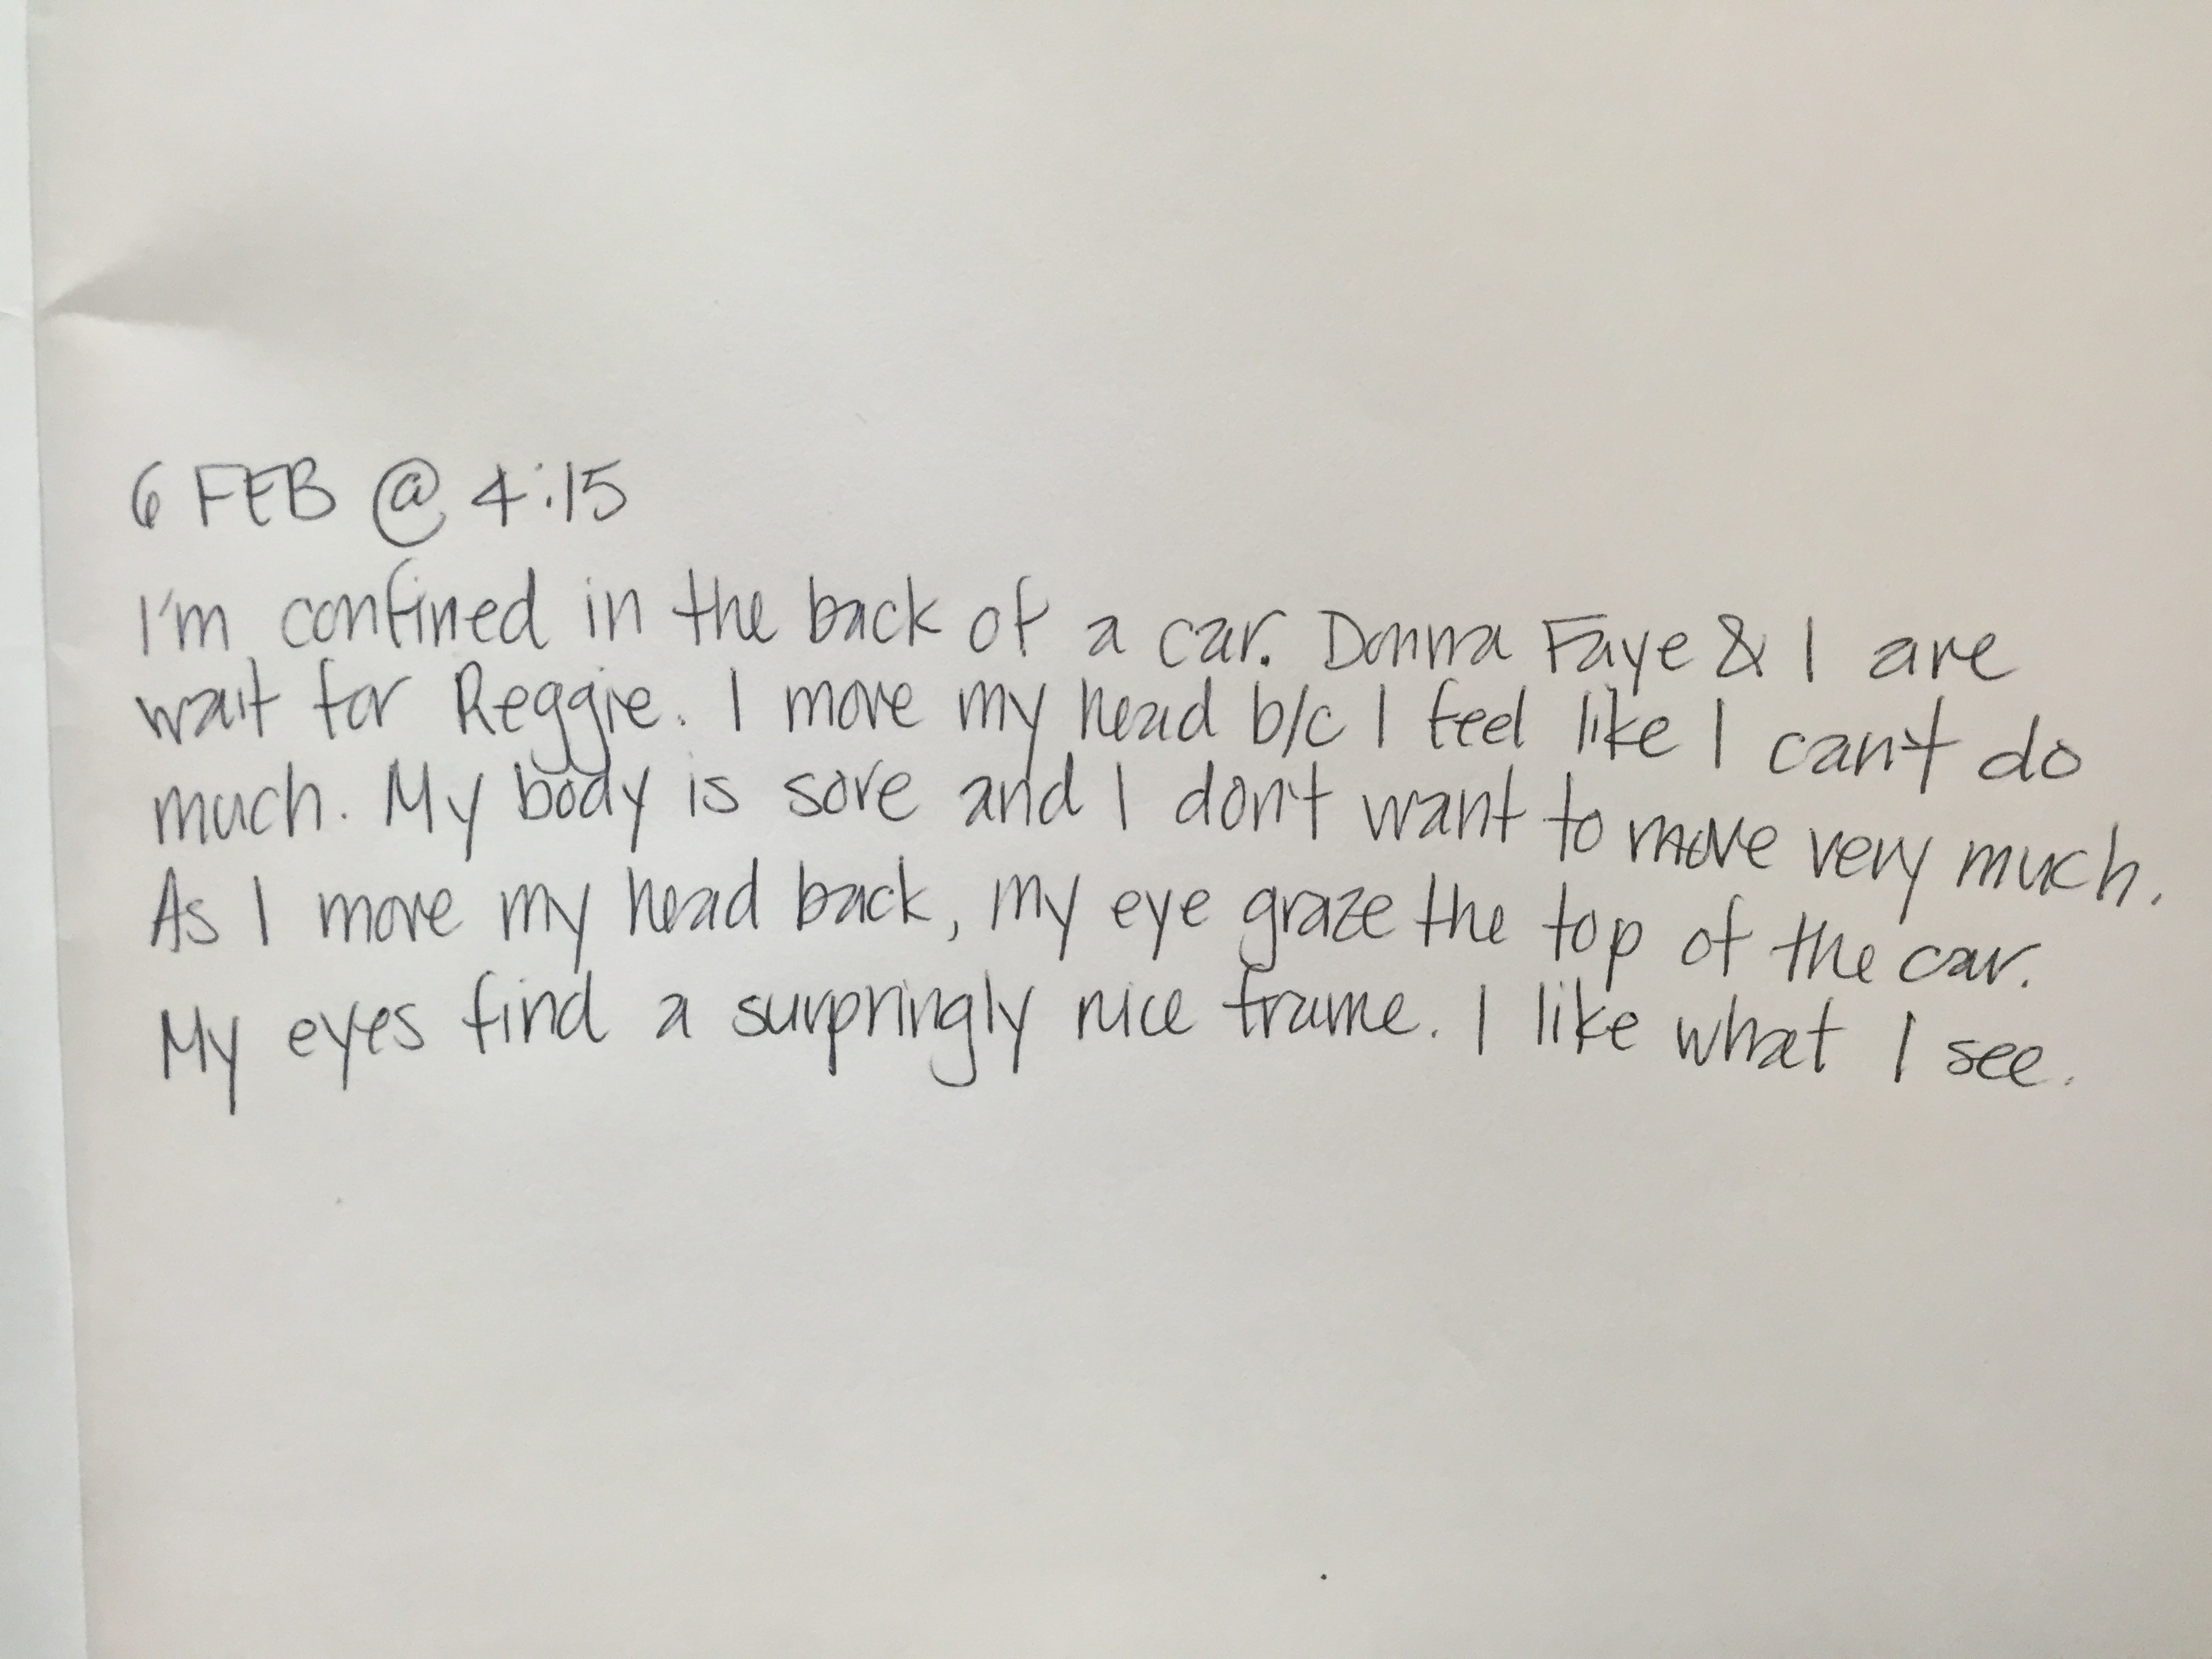 6 FEB @ 4:15
I'm confined in the back of a car. Donna Faye & I are
wait for Reggie. I move my head b/c I feel like I can't do
much. My body is sore and I don't want to move very much.
As I move my head back, my eye graze the top of the car.
My eyes find a surpringly nice frame. I like what I see.